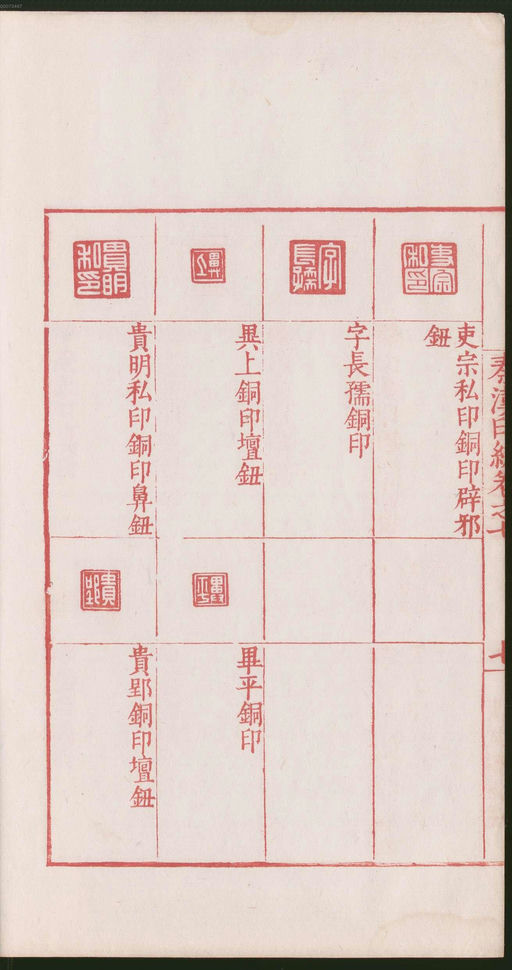 吏宗私印銅印辟邪
鈕
字長孺銅印
異上銅印壇鈕
畢平銅印
貴明私印銅印鼻鈕
貴郢銅印壇鈕
秦漢印統卷之七
七